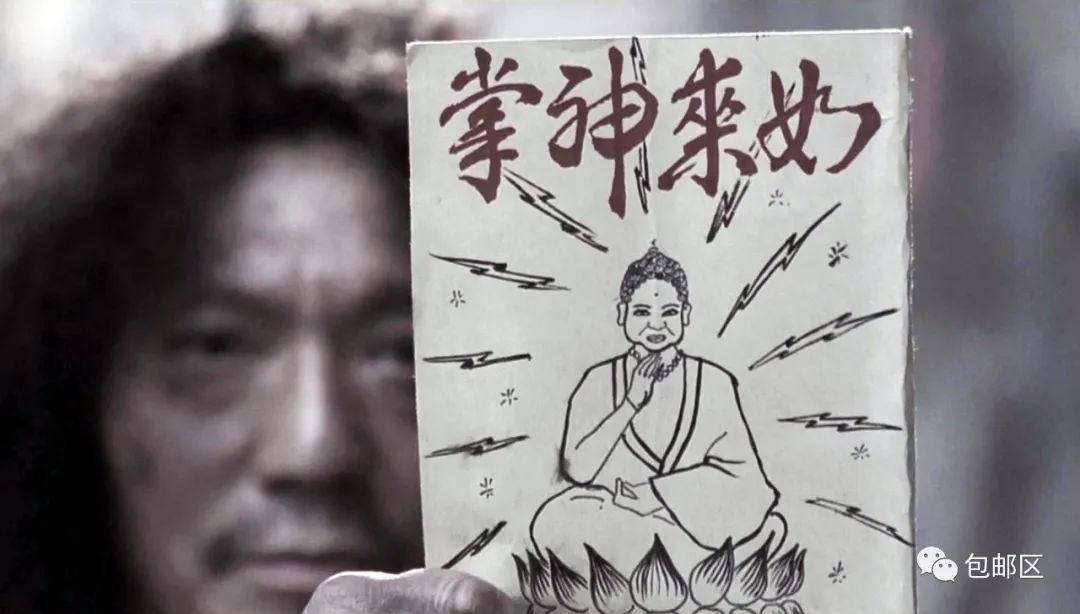 如來神掌
包邮区